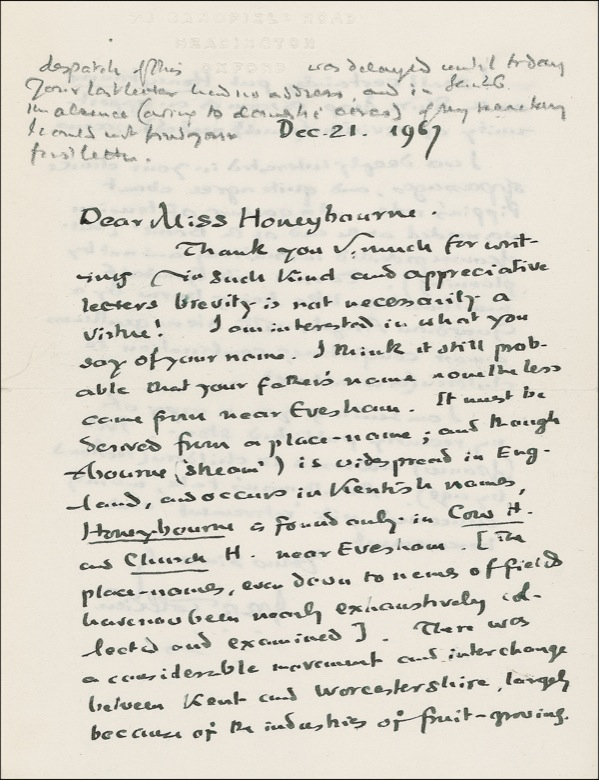 despatch of this was delayed until today
Your last letter had no address and in
in absence (owing to domestic ) of my secretary
I could not find your
first letter.
Dec. 21. 1967
Dear Miss Honeybourne.
Thank you v. much for writ-
ing in such kind and appreciative
letters brevity is not necessarily a
virtue! I am interested in what you
say of your name. I think it still prob-
able that your father's name nonetheless
came from near Evesham. It must be
derived from a place-name; and though
-bourne ('stream') is widespread in Eng-
land, and occurs in Kentish names,
Honeybourne is found only in Cow H.
and Church H. near Evesham. [The
place-names, even down to names of fields
have now been nearly exhaustively col-
lected and examined]. There was
a considerable movement and interchange
between Kent and Worcestershire, largely
because of the industries of fruit-growing.